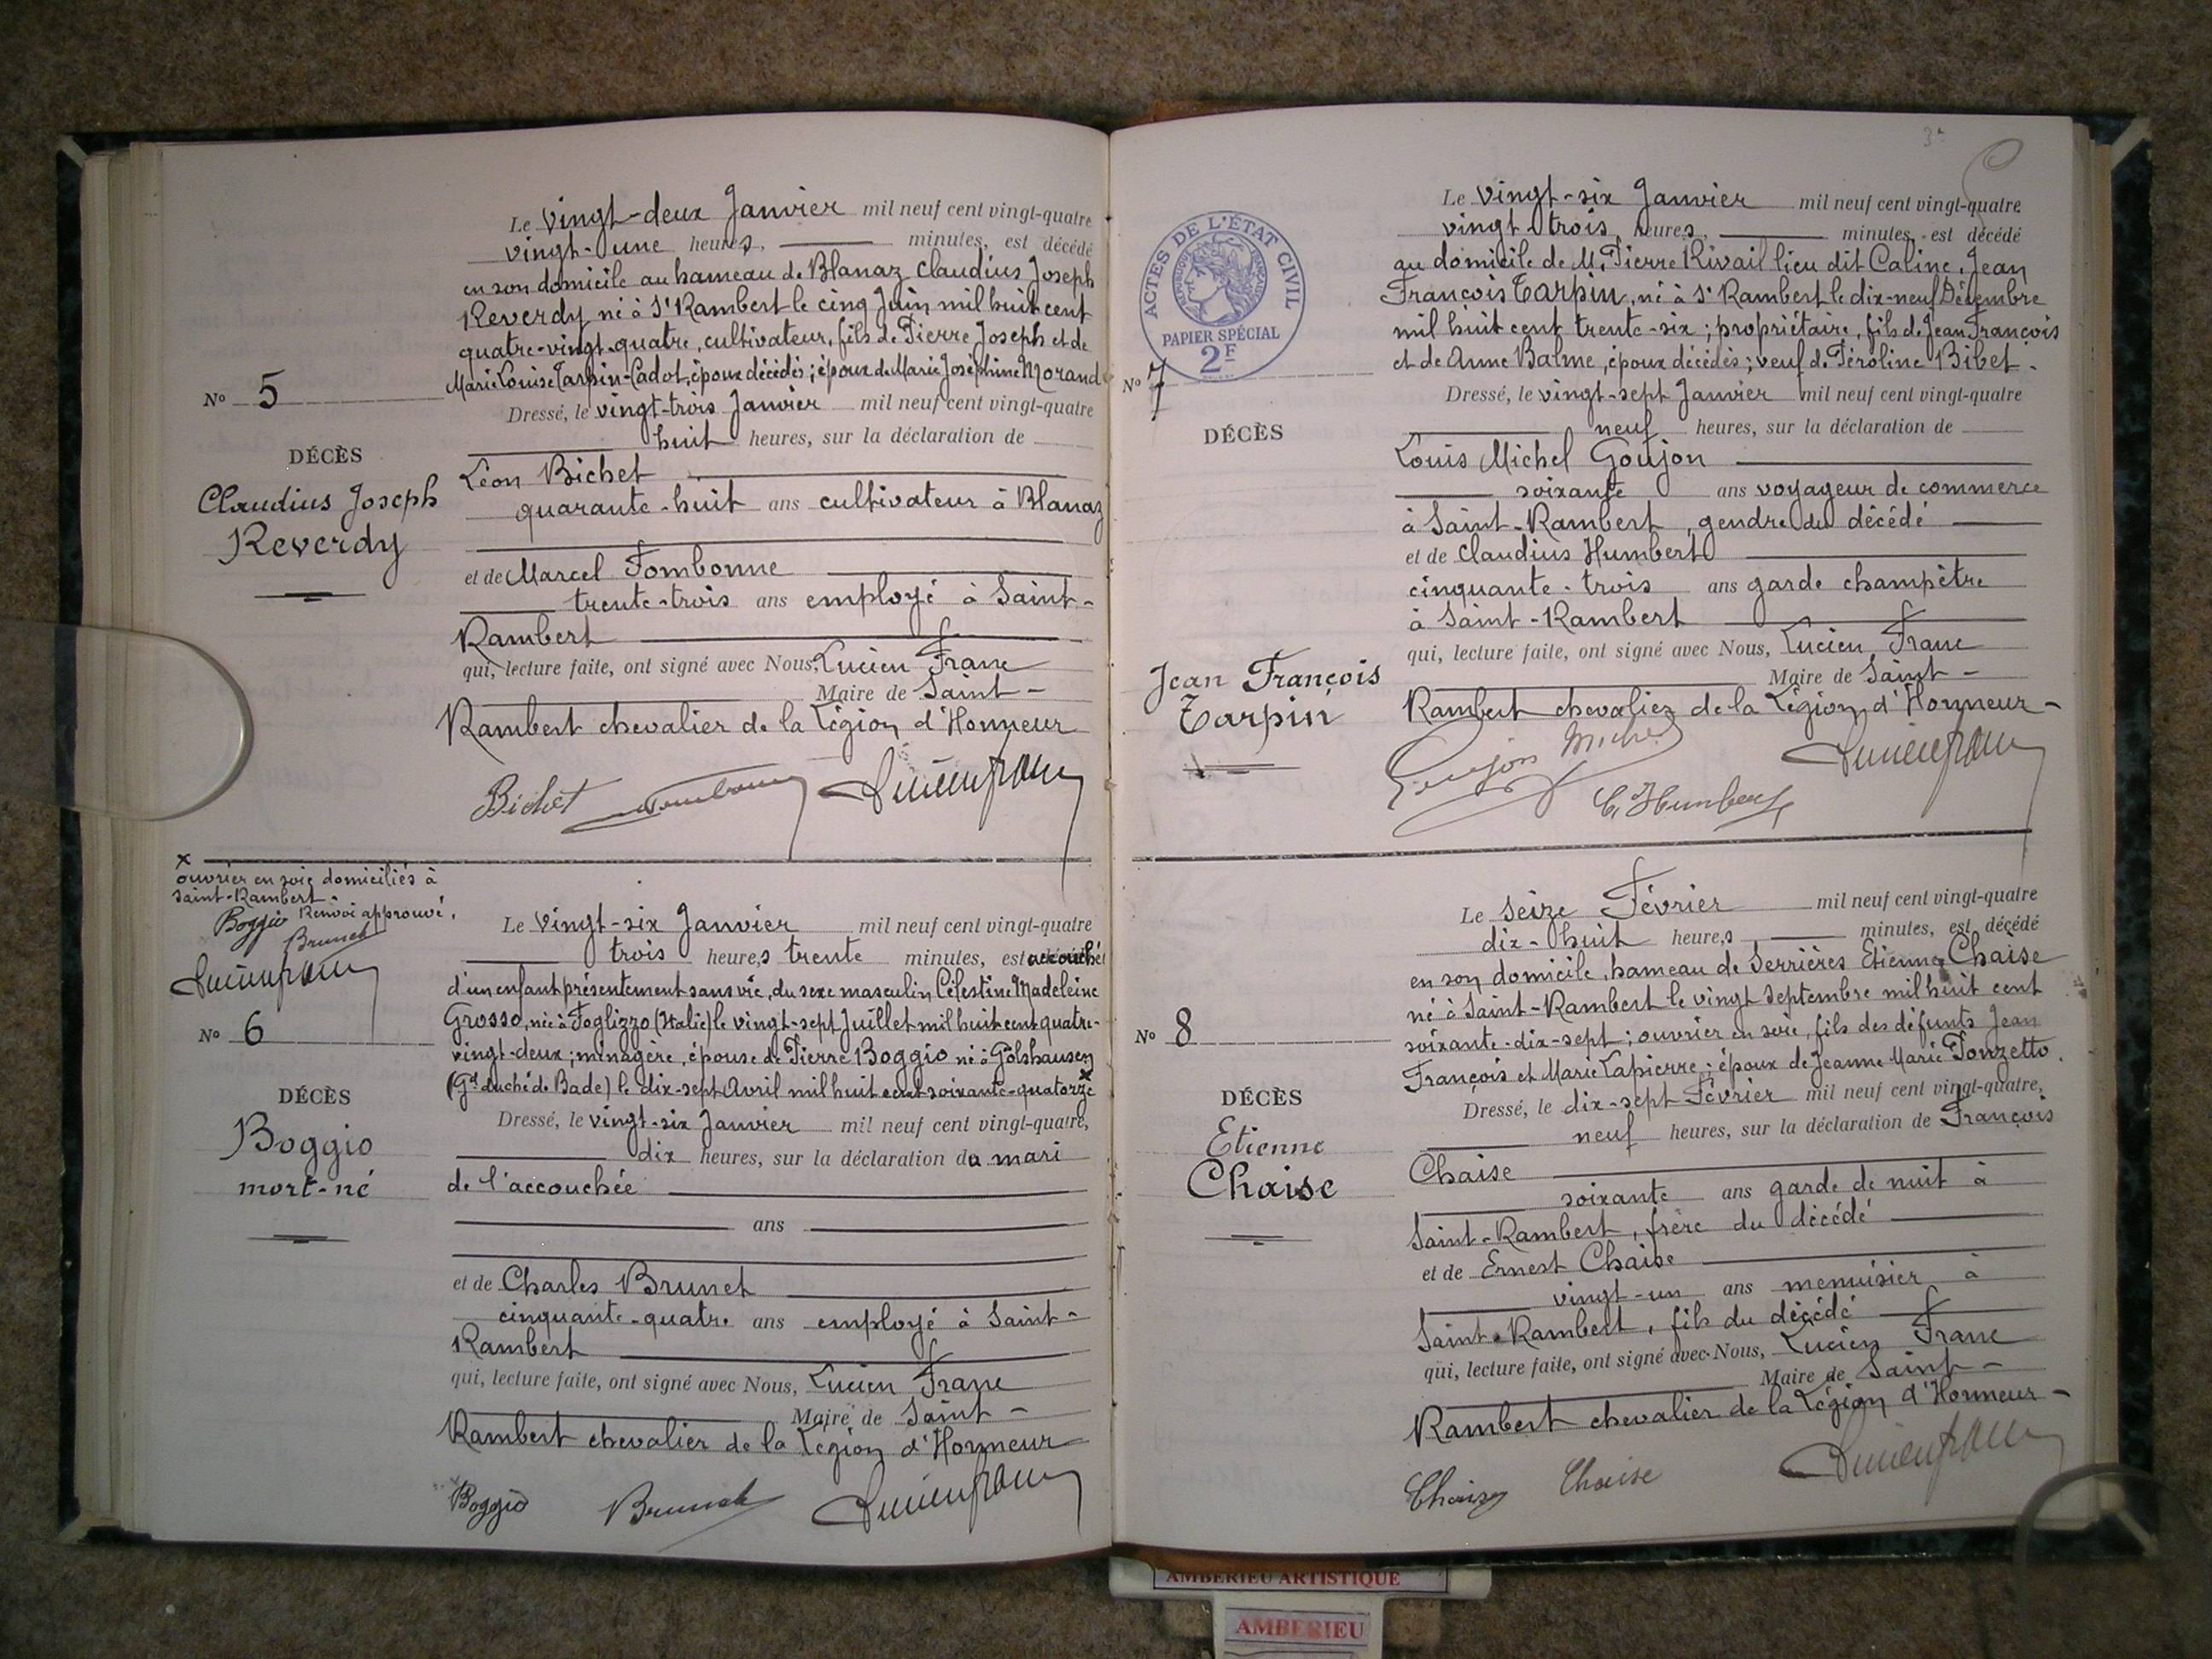 Le vingt-deux Janvier mil neuf cent vingt-quatre
vingt-une heures, minutes, est décédé
en son domicile au hameau de Blanaz Claudius Joseph
Reverdy né à St Rambert le cinq Juin mil huit cent
quatre-vingt-quatre, cultivateur, fils de Pierre Joseph et de
Marie Louise Tarpin-Cadot, époux décédés; époux de Marie Joséphine Morand
No 5
Dressé, le vingt-trois Janvier mil neuf cent vingt-quatre
huit heures, sur la déclaration de
DÉCÈS
Claudius Joseph
Reverdy
Léon Bichet
quarante-huit ans cultivateur à Blanaz
et de Marcel Fombonne
trente-trois ans employé à Saint-
Rambert
qui, lecture faite, ont signé avec Nous, Lucien Franc
Maire de Saint-
Rambert chevalier de la Légion d'Honneur
Bichet Fombonne Lucien Franc
x
ouvrier en soie domiciliés à
Saint-Rambert.
Renvoi approuvé.
Boggio
Brunet
Lucien Franc
No 6
DÉCÈS
Boggio
mort-né
Le vingt-six Janvier mil neuf cent vingt-quatre
trois heures trente minutes, est accouchée
d'un enfant présentement sans vie, du sexe masculin Célestine Madeleine
Grosso, née à Foglizzo (Italie) le vingt-sept Juillet mil huit cent quatre-
vingt-deux; ménagère, épouse de Pierre Boggio né à Gölshausen
(Gd duché de Bade) le dix-sept Avril mil huit cent soixante-quatorze x
Dressé, le vingt-six Janvier mil neuf cent vingt-quatre,
dix heures, sur la déclaration du mari
de l'accouchée
ans
et de Charles Brunet
cinquante-quatre ans employé à Saint-
Rambert
qui, lecture faite, ont signé avec Nous, Lucien Franc
Maire de Saint-
Rambert chevalier de la Légion d'Honneur
Boggio Brunet Lucien Franc
ACTES DE L'ÉTAT CIVIL
RÉPUBLIQUE FRANÇAISE
PAPIER SPÉCIAL
2F
No 7
DÉCÈS
Jean François
Tarpin
Le vingt-six Janvier mil neuf cent vingt-quatre
vingt-trois heures, minutes, est décédé
au domicile de M. Pierre Rivail lieu dit Caline, Jean
François Tarpin, né à St Rambert le dix-neuf Décembre
mil huit cent trente-six; propriétaire, fils de Jean François
et de Anne Balme, époux décédés; veuf de Péroline Bibet.
Dressé, le vingt-sept Janvier mil neuf cent vingt-quatre
neuf heures, sur la déclaration de
Louis Michel Goujon
soixante ans voyageur de commerce
à Saint-Rambert, gendre du décédé
et de Claudius Humbert
cinquante-trois ans garde champêtre
à Saint-Rambert
qui, lecture faite, ont signé avec Nous, Lucien Franc
Maire de Saint-
Rambert chevalier de la Légion d'Honneur-
Goujon Michel C. Humbert Lucien Franc
No 8
DÉCÈS
Etienne
Chaise
Le seize Février mil neuf cent vingt-quatre
dix-huit heures minutes, est décédé
en son domicile, hameau de Serrières Etienne Chaise
né à Saint-Rambert le vingt Septembre mil huit cent
soixante-dix-sept; ouvrier en soie, fils des défunts Jean
François et Marie Lapierre; époux de Jeanne Marie Ponzetto.
Dressé, le dix-sept Février mil neuf cent vingt-quatre,
neuf heures, sur la déclaration de François
Chaise
soixante ans garde de nuit à
Saint-Rambert, frère du décédé
et de Ernest Chaise
vingt-un ans menuisier à
Saint-Rambert, fils du décédé
qui, lecture faite, ont signé avec Nous, Lucien Franc
Maire de Saint-
Rambert chevalier de la Légion d'Honneur-
Chaise Chaise Lucien Franc
AMBERIEU ARTISTIQUE
AMBERIEU